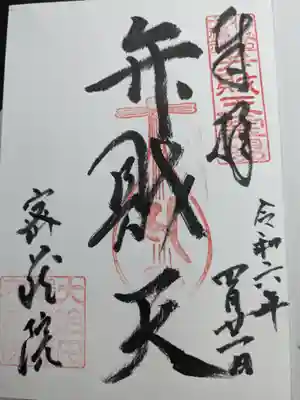 奉拝
令和六年
四月廿一日
弁財天
密蔵院